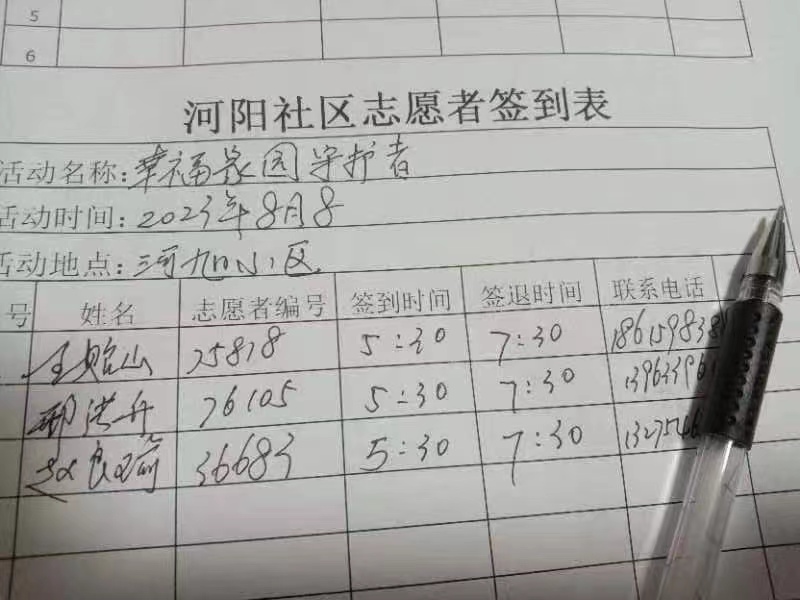 5
6
河阳社区志愿者签到表
活动名称:幸福家园守护者
活动时间:2023年8月8
活动地点:河阳小区
号 姓名 志愿者编号 签到时间 签退时间 联系电话
王贻山 75878 5:30 7:30 186159838
邢洪升 76105 5:30 7:30 13963396
赵良瑜 36683 5:30 7:30 1327546